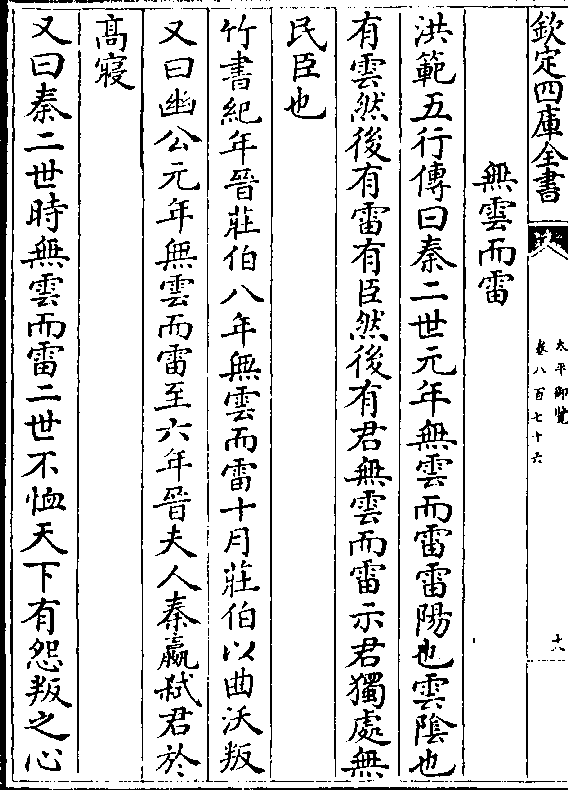 欽定四庫全書
太平御覽
卷八百七十六
十八
無雲而雷
洪範五行傳曰秦二世元年無雲而雷雷陽也雲隂也
有雲然後有雷有臣然後有君無雲而雷示君獨處無
民臣也
竹書紀年晉莊伯八年無雲而雷十月莊伯以曲沃叛
又曰幽公元年無雲而雷至六年晉夫人秦嬴弑君於
髙寢
又曰秦二世時無雲而雷二世不恤天下有怨叛之心